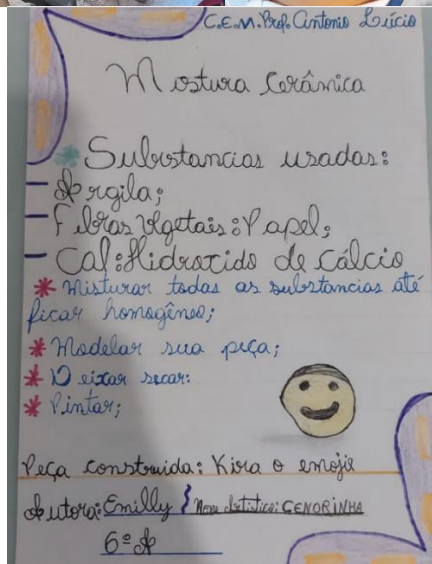 C.E.M. Prof. Antonio Lúcio
Mistura Cerâmica
Substancias usadas:
Argila;
Fibras Vegetais: Papel;
Cal: Hidroxido de Cálcio
* Misturar todas as substancias até
ficar homogêneo;
* Modelar sua peça;
* Deixar secar:
* Pintar;
Peça construida: Kira o emojie
Autora: Emilly } Nome Artistico: CENORINHA
6º A